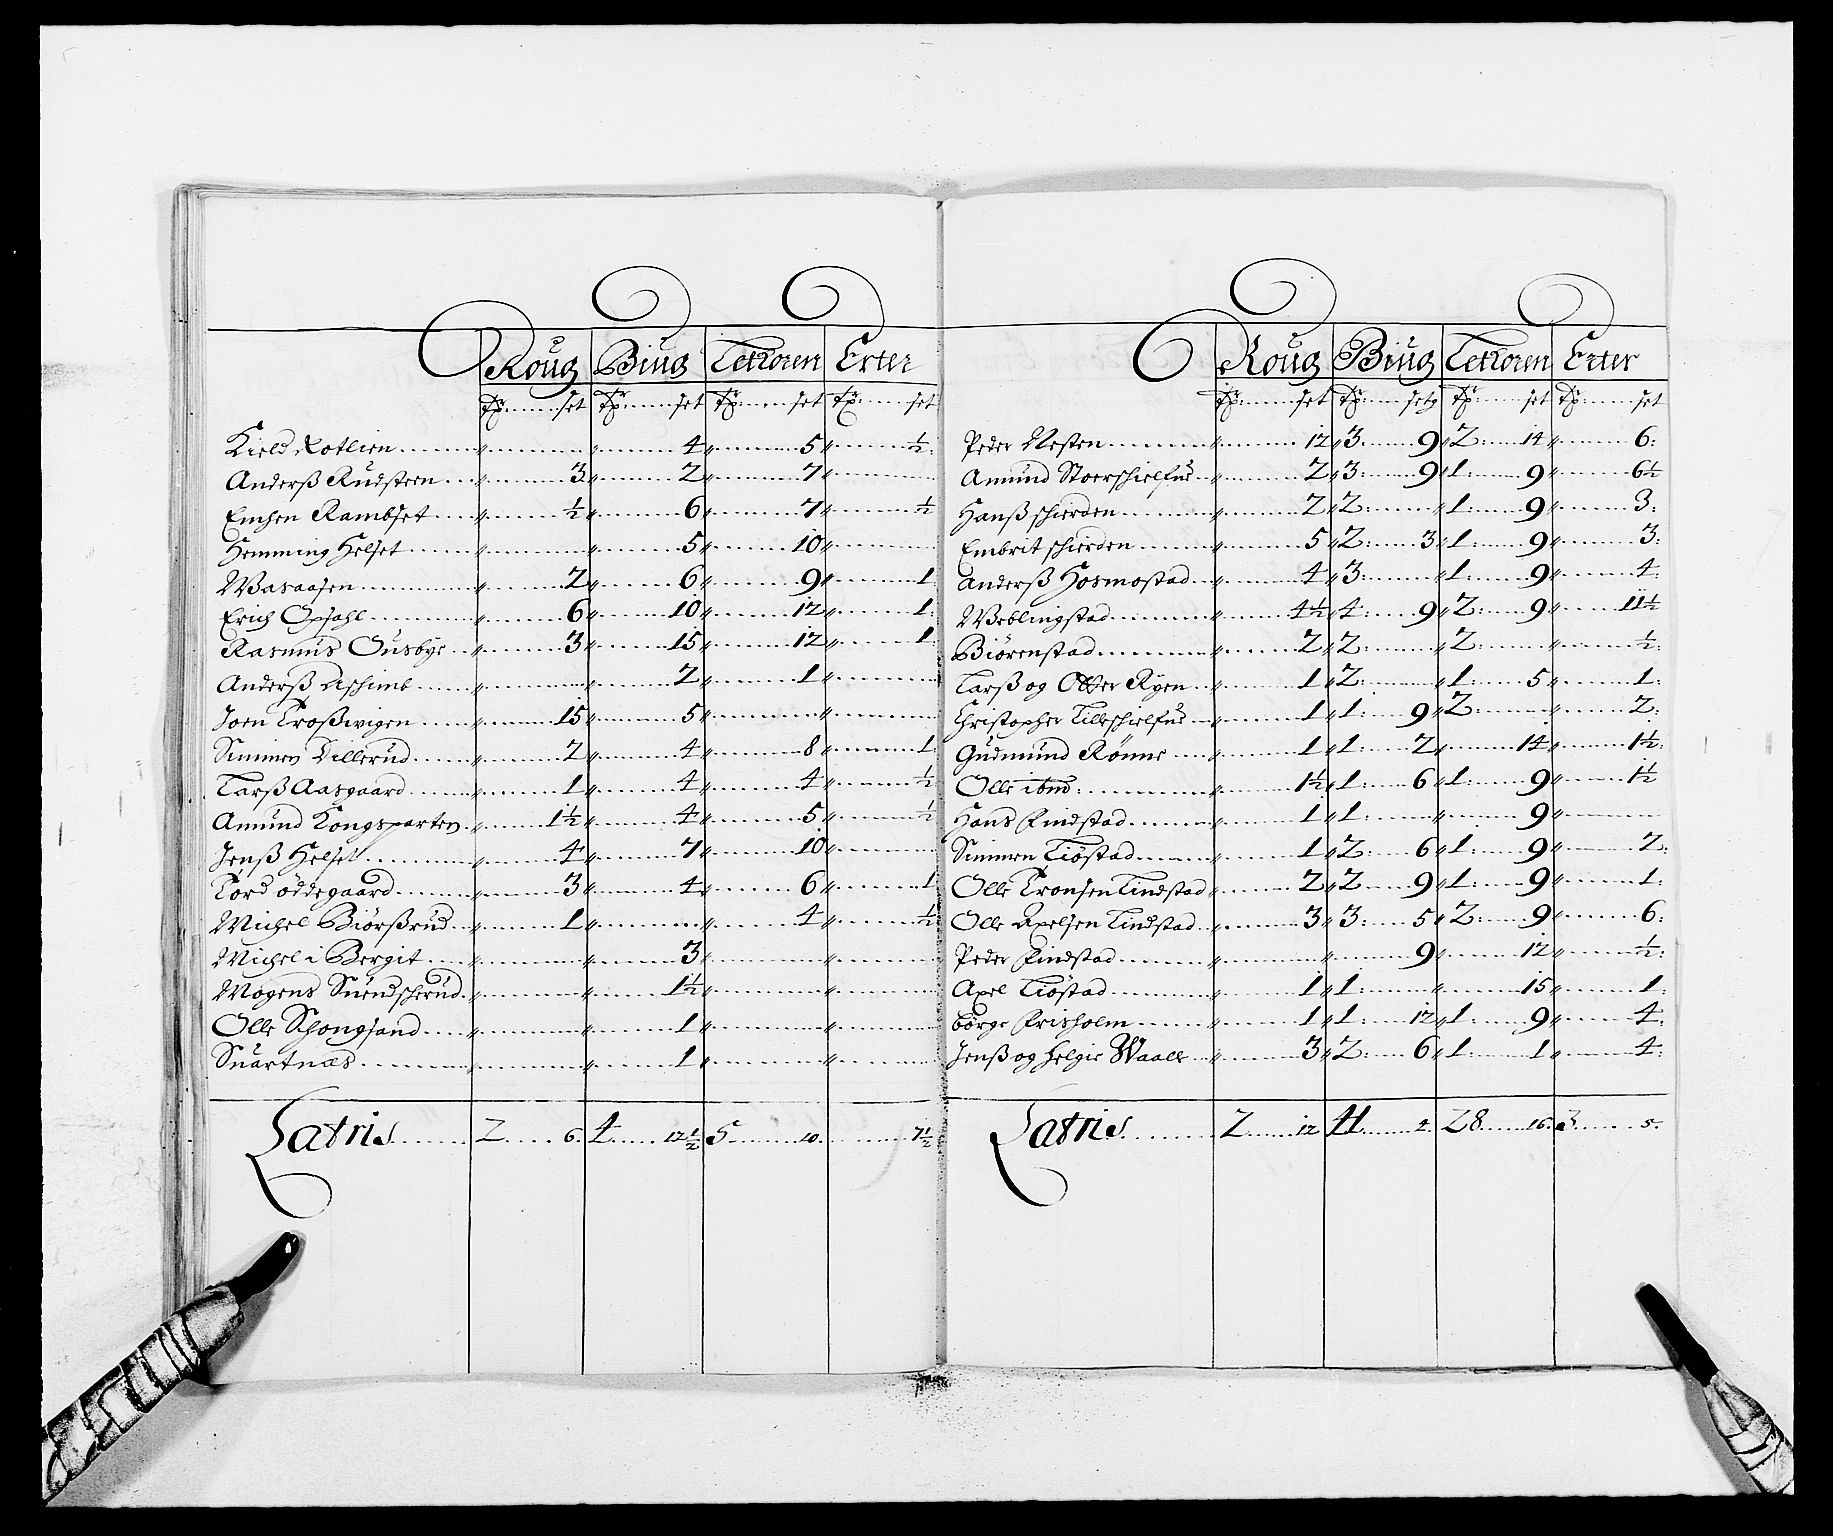 Roug Biug Tetkoren Erter
Tr: set Tr: set Tr: set Tr: set
Kield Rotlien " " 4 " 5 " ½
Anderß Rudsteen " 3 " 2 " 7 "
Emhen Rambset " ½ " 6 " 7 " ½
Hemming Helset " " 5 " 10 "
Wasaasen " 2 " 6 " 9 " 1
Erich Opsahl " 6 " 10 " 12 " 1
Rasmus Ousbye " 3 " 15 " 12 " 1
Anderß Aschimb " " 2 " 1 "
Joen Troßwigen " 15 " 5 " "
Simmen Lillerud " 2 " 4 " 8 " 1
Larß Aasgaard " 1 " 4 " 4 " ½
Amund Kongsparten " 1½ " 4 " 5 " ½
Jenß Helset " 4 " 7 " 10 "
Tord ödegaard " 3 " 4 " 6 " 1
Michel Biörßrud " 1 " " 4 " ½
Michel i Bergit " " 3 " "
Mogens Suendscherud " " 1½ " "
Olle Schongsand " " 1 " "
Suartnæs " " 1 " "
Latris 2 6 4 12½ 5 10 7½
Roug Biug Tetkoren Erter
Tr: set Tr: set Tr: set Tr: set
Peder Nesten " 12 3 9 2 14 " 6
Amund Stoerschielfus " 2 3 9 1 9 " 6½
Hanß schierden " 2 2 " 1 9 " 3
Embrit schierden " 5 2 3 1 9 " 3
Anderß Hosmostad " 4 3 " 1 9 " 4
Weblingstad " 4½ 4 9 2 9 " 11½
Biörenstad " 2 2 " 2 " " ½
Larß og Otter Ryen " 1 2 " 1 5 " 1
Christopher Lilleschielfus " 1 1 9 2 " " 2
Gudmund Rönne " 1 1 2 " 14 " 1½
Olle ibm: " 1½ 1 6 1 9 " 1½
Hans Findstad " 1 1 " " 9 "
Simmen Tiöstad " 1 2 6 1 9 " 2
Olle Tronsen Lindstad " 2 2 9 1 9 " 1
Olle Axelsen Lindstad " 3 3 5 2 9 " 6
Peder Findstad " " " 9 " 12 " ½
Axel Tiöstad " 1 1 " " 15 " 1
börge Frisholm " 1 1 12 1 9 " 4
Jenß og helgie Waale " 3 2 6 1 1 " 4
Latris 2 12 41 4 28 16 3 5